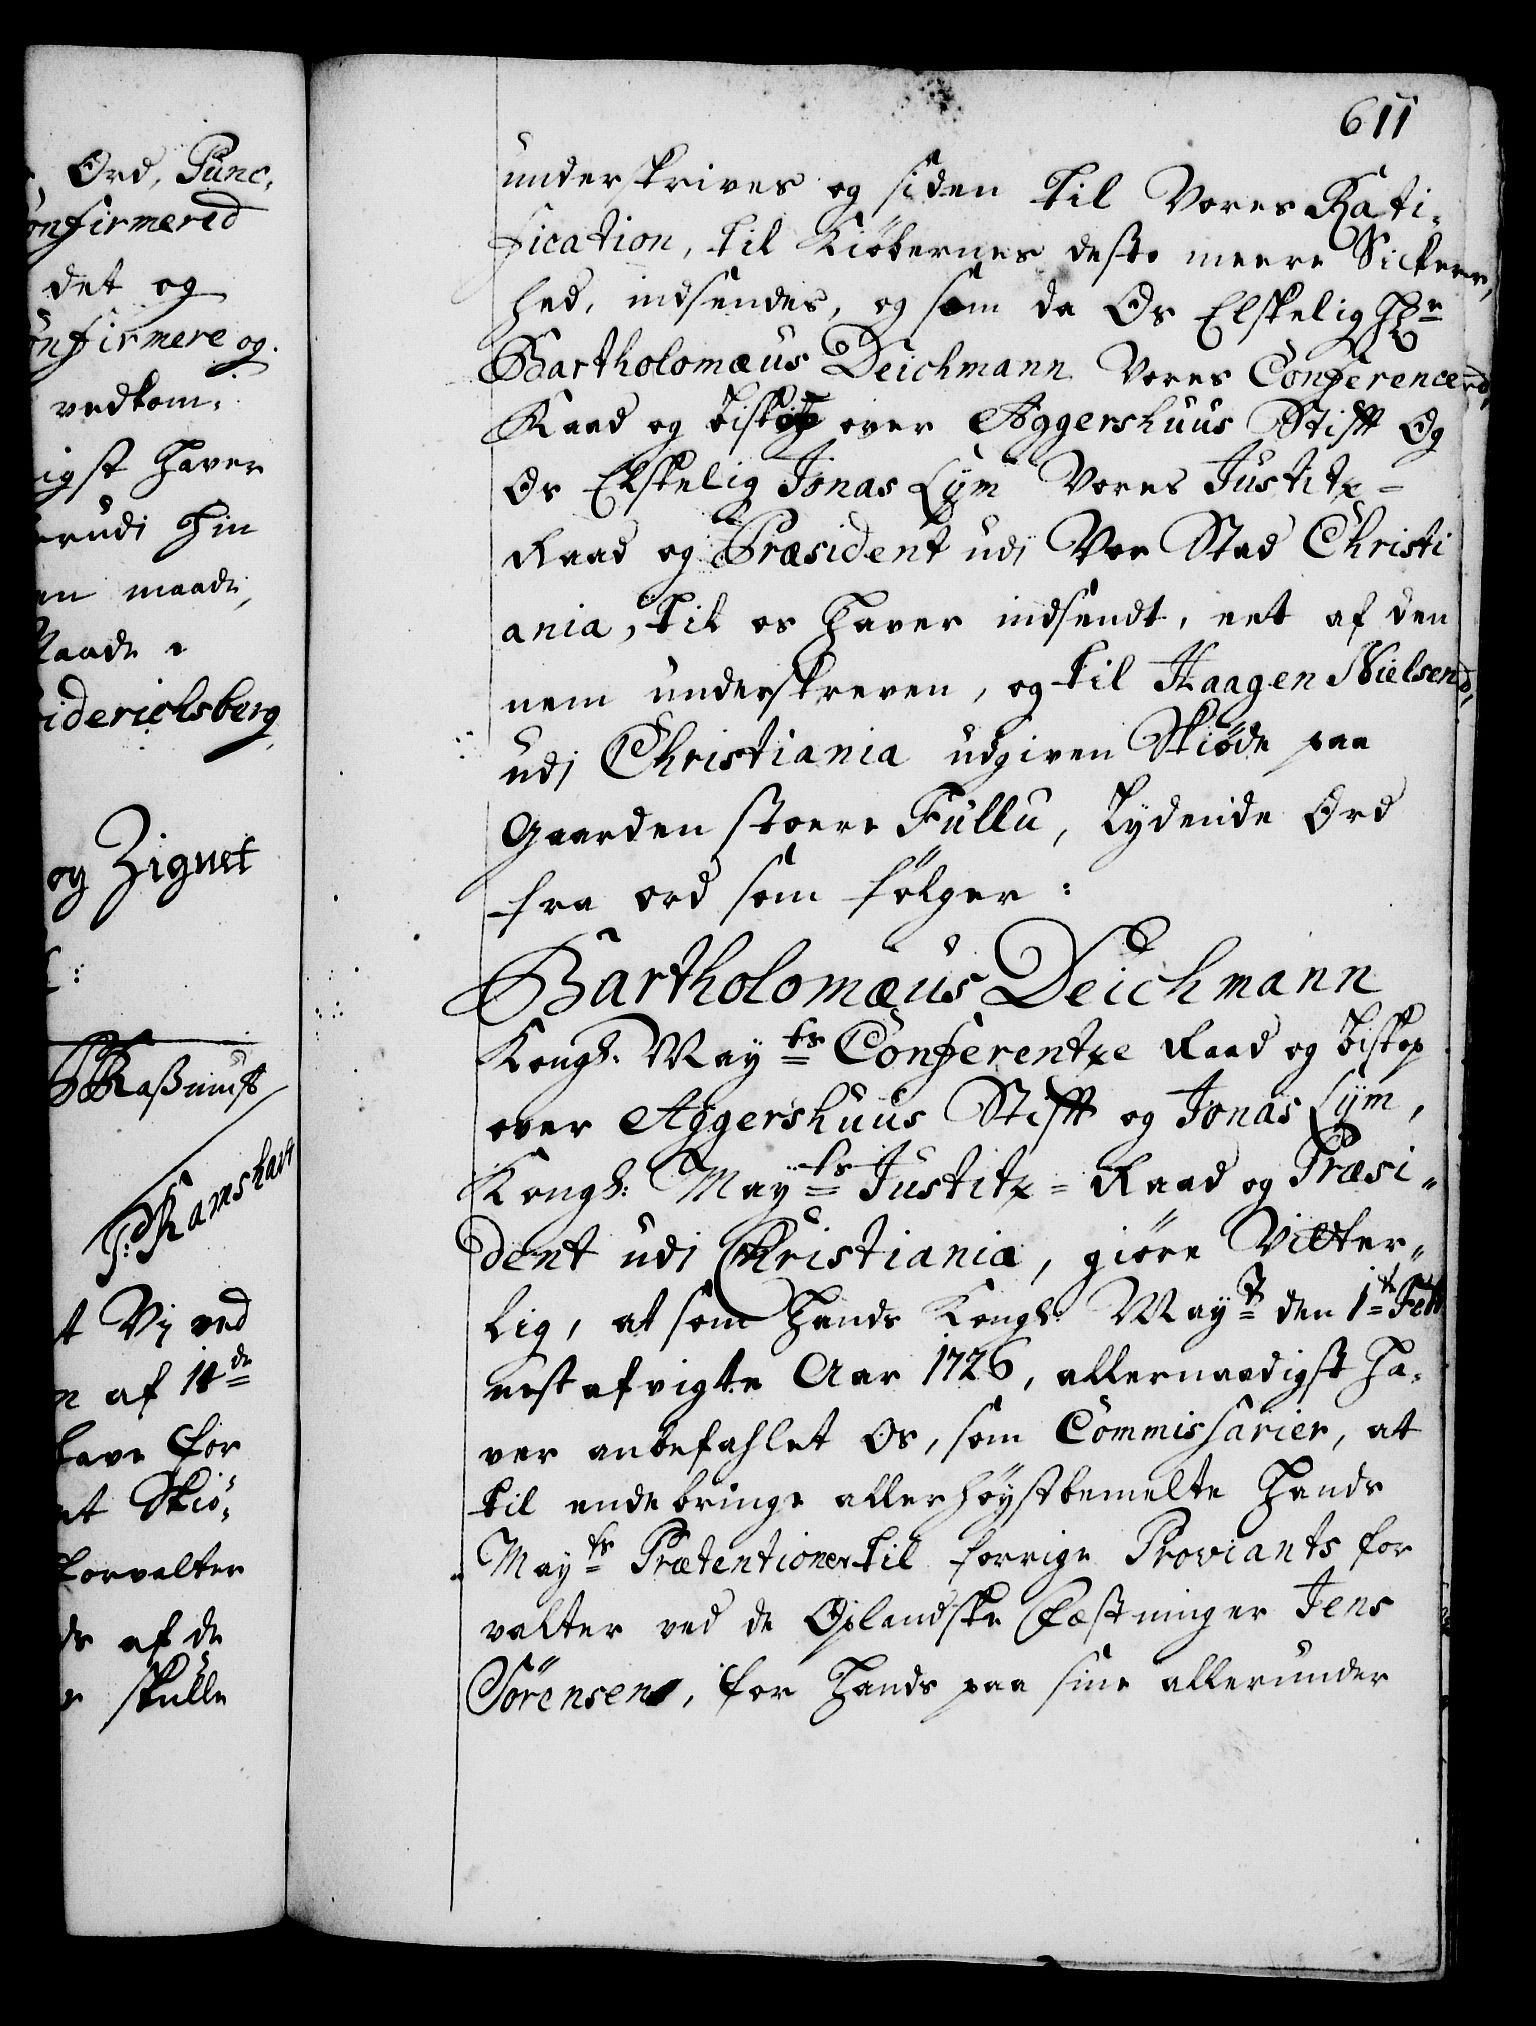 , Ord, Punc,
onfirmered
det og
onfirmere og
vedkom,
igst haver
erudi hin
en maade,
Raade
riderichsberg
og Zignet
J: Ramshart
t Vj ved
n af 14de
have for
et Skiö,
forvalter
ds af de
e skulle
611
underskrives og siden til Vores Rati,
fication, til Kiöbernes desto meere Sicker,
hed, indsendes, og som da Os Elskelig Hr
Bartholomæus Deichmann Vores Conference
Raad og biskop over Aggershuus Stift Og
Os Elskelig Jonas Lÿm Vores Justitz=
Raad og Præsident udj Vor Stad Christi
ania, til os haver indsendt, eet af den
nem underskreven, og til Haagen Nielsen
udj Christiania udgiven Skiöde paa
Gaarden stoere Fullu, Lydende Ord
fra ord som fölger:
Bartholomæus Deichmann
Kongl: Mayts Conferentze Raad og biskop
over Aggershuus Stift og Jonas Lÿm,
Kongl: Mayts Justitz= Raad og Præsi,,
dent udi Christiania, giöre Vitter,,
lig, at som Hands Kongl: Mayt den 1te Feb
nest afvigte Aar 1726, allernaadigst ha,
ver anbefahlet Os, som Commissarier, at
til ende bringe allerhöystbemelte Hands
Mayts Prætentioner til forrige Proviants for
valter ved de Oplandske Fæstninger Jens
Sörensen, for Hands paa sine allerunder